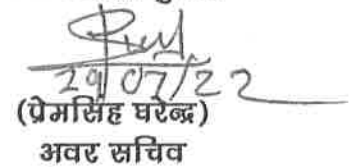 29/07/22
(प्रेमसिंह घरेन्द्र)
अवर सचिव